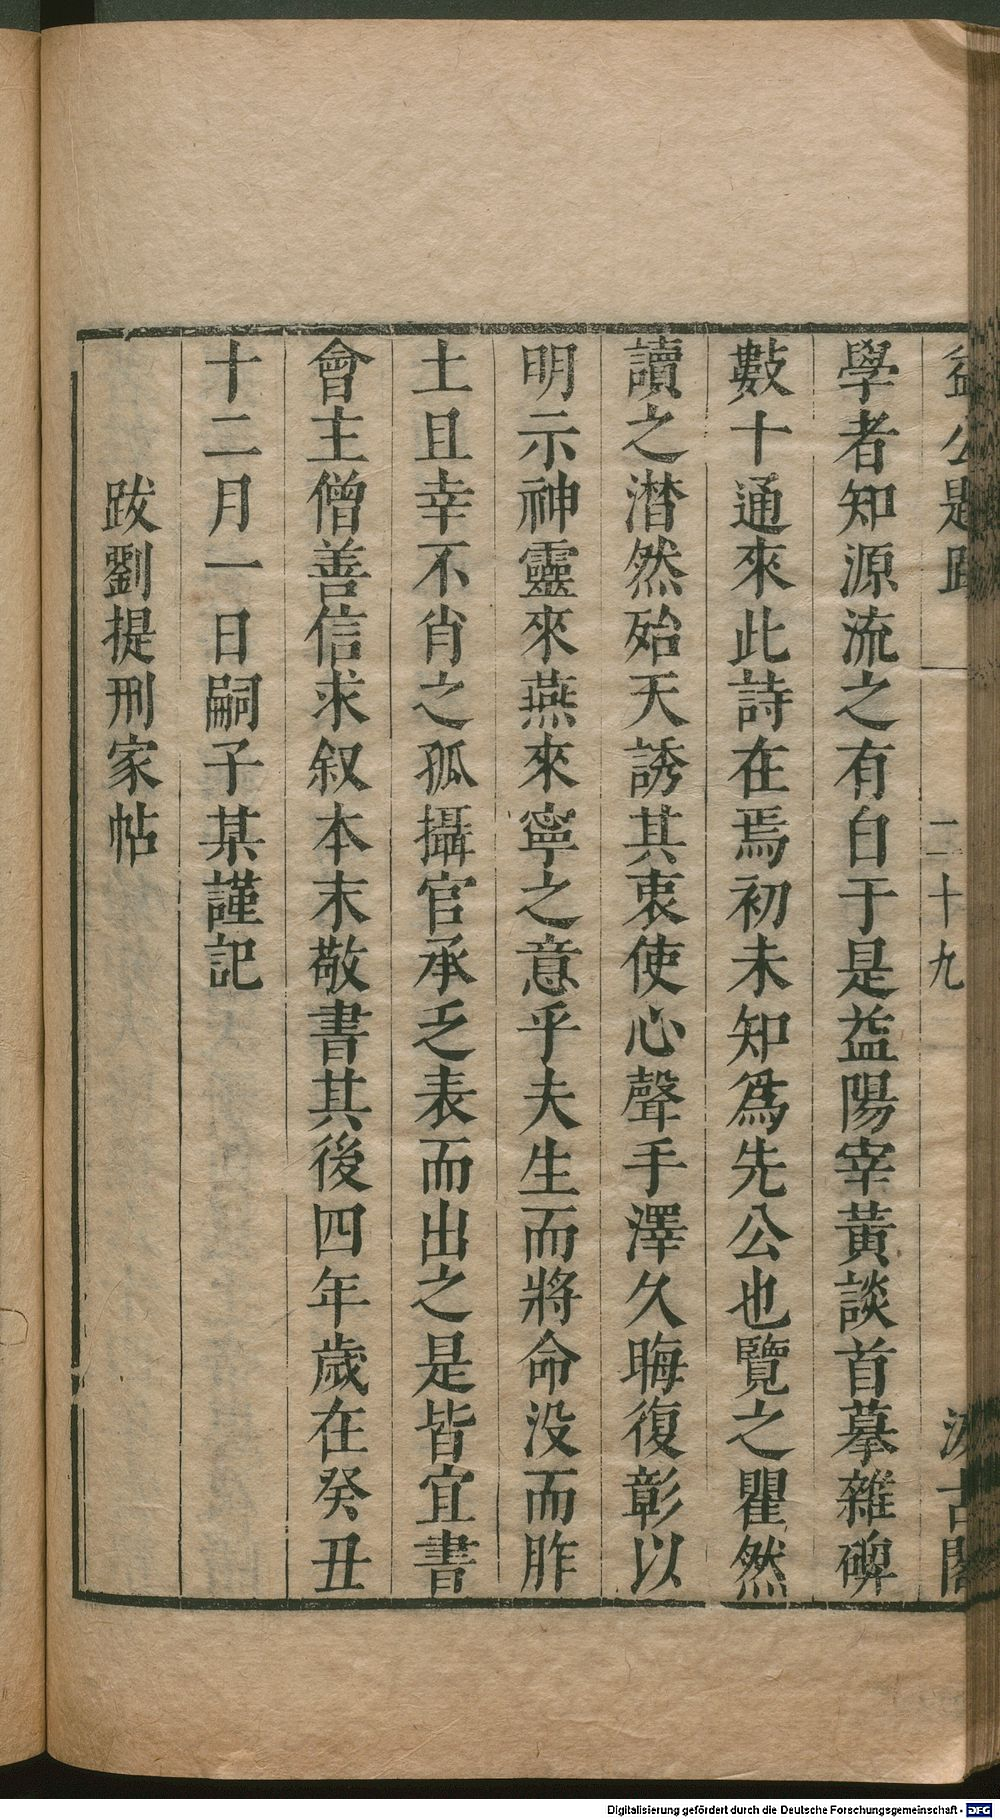 益公題跋
二十九
汲古閣
學者知源流之有自于是益陽宰黃談首摹雜碑
數十通來此詩在焉初未知爲先公也覽之瞿然
讀之潸然殆天誘其衷使心聲手澤久晦復彰以
明示神靈來燕來寧之意乎夫生而將命没而胙
土且幸不肖之孤攝官承乏表而出之是皆宜書
會主僧善信求叙本末敬書其後四年歲在癸丑
十二月一日嗣子某謹記
跋劉提刑家帖
Digitalisierung gefördert durch die Deutsche Forschungsgemeinschaft - DFG